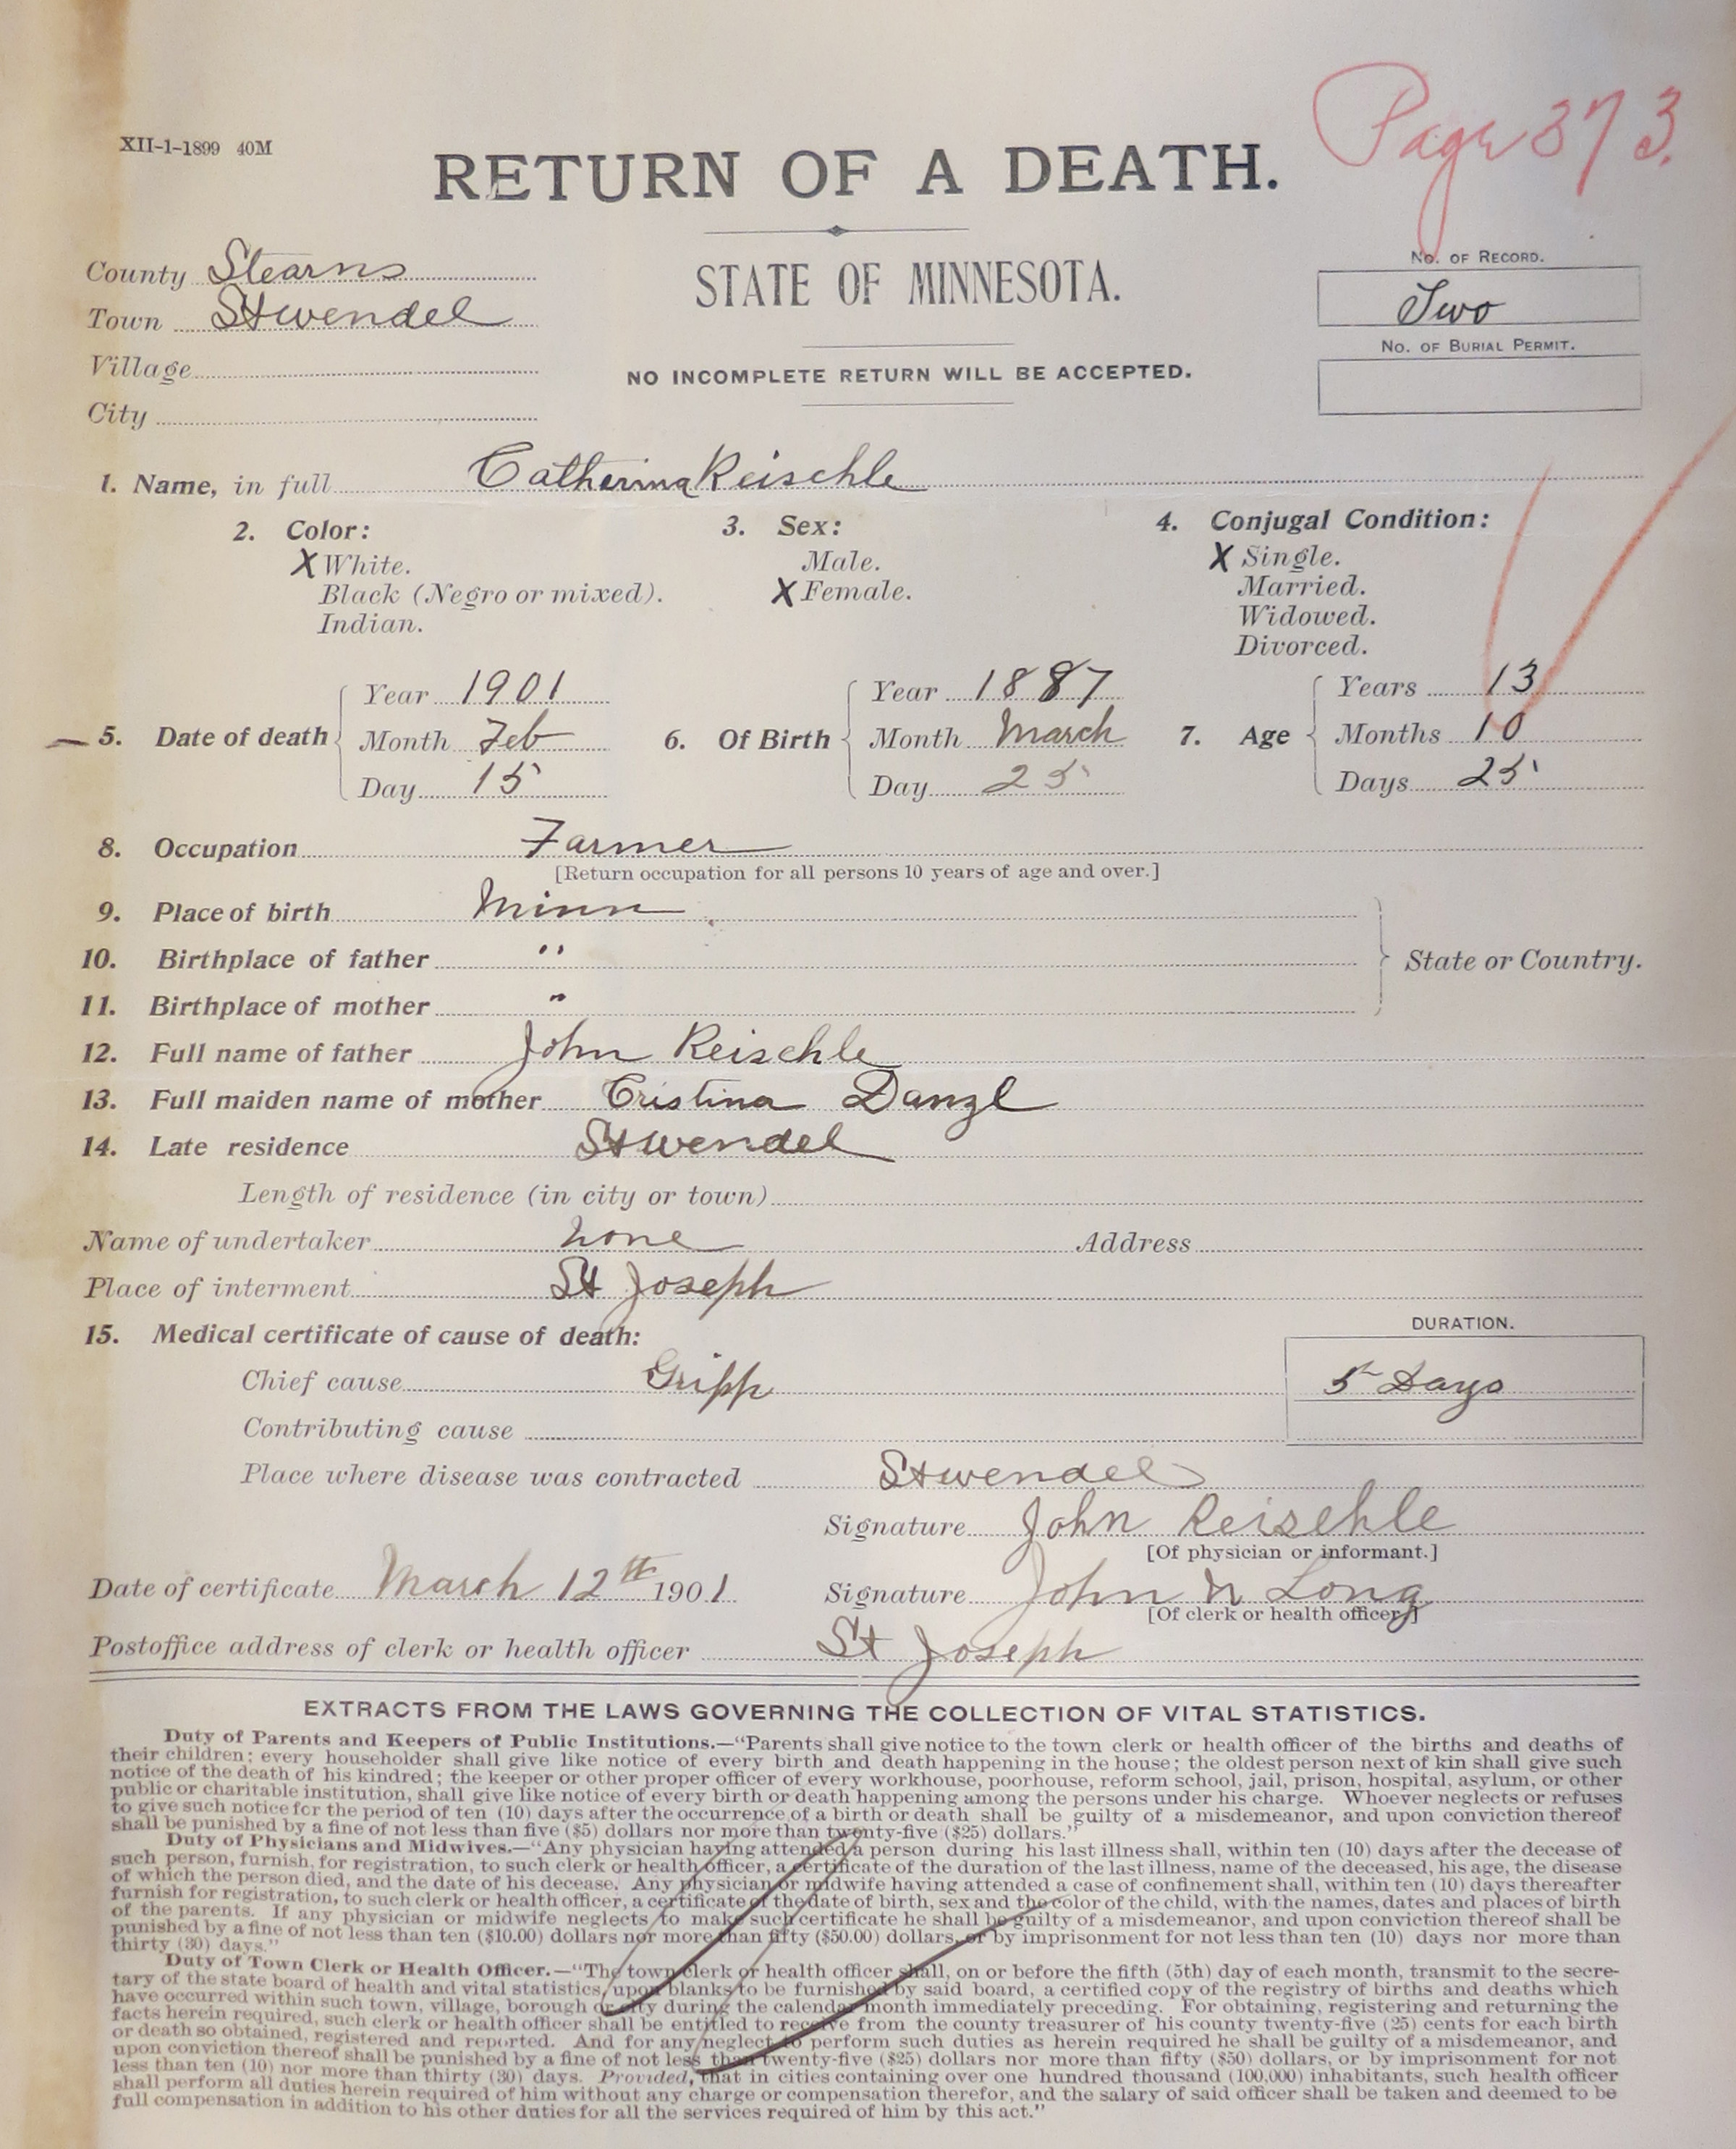 Page 373.
XII-1-1899 40M
RETURN OF A DEATH.
County Stearns
Town St wendel
Village
City
STATE OF MINNESOTA.
NO INCOMPLETE RETURN WILL BE ACCEPTED.
No. of Record.
Two
No. of Burial Permit.
1. Name, in full Catherina Reischle
2. Color:
X White.
Black (Negro or mixed).
Indian.
3. Sex:
Male.
X Female.
4. Conjugal Condition:
X Single.
Married.
Widowed.
Divorced.
5. Date of death
Year 1901
Month Feb
Day 15
6. Of Birth
Year 1887
Month March
Day 25
7. Age
Years 13
Months 10
Days 25
8. Occupation Farmer
[Return occupation for all persons 10 years of age and over.]
9. Place of birth Minn
10. Birthplace of father "
11. Birthplace of mother "
State or Country.
12. Full name of father John Reischle
13. Full maiden name of mother Cristina Danzl
14. Late residence St wendel
Length of residence (in city or town)
Name of undertaker none Address
Place of interment St Joseph
15. Medical certificate of cause of death:
DURATION.
Chief cause Gripp 5 Days
Contributing cause
Place where disease was contracted St wendel
Signature John Reischle
[Of physician or informant.]
Date of certificate March 12th 1901 Signature John N Long
[Of clerk or health officer.]
Postoffice address of clerk or health officer St Joseph
EXTRACTS FROM THE LAWS GOVERNING THE COLLECTION OF VITAL STATISTICS.
Duty of Parents and Keepers of Public Institutions.—"Parents shall give notice to the town clerk or health officer of the births and deaths of
their children; every householder shall give like notice of every birth and death happening in the house; the oldest person next of kin shall give such
notice of the death of his kindred; the keeper or other proper officer of every workhouse, poorhouse, reform school, jail, prison, hospital, asylum, or other
public or charitable institution, shall give like notice of every birth or death happening among the persons under his charge. Whoever neglects or refuses
to give such notice for the period of ten (10) days after the occurrence of a birth or death shall be guilty of a misdemeanor, and upon conviction thereof
shall be punished by a fine of not less than five ($5) dollars nor more than twenty-five ($25) dollars."
Duty of Physicians and Midwives.—"Any physician having attended a person during his last illness shall, within ten (10) days after the decease of
such person, furnish, for registration, to such clerk or health officer, a certificate of the duration of the last illness, name of the deceased, his age, the disease
of which the person died, and the date of his decease. Any physician or midwife having attended a case of confinement shall, within ten (10) days thereafter
furnish for registration, to such clerk or health officer, a certificate of the date of birth, sex and the color of the child, with the names, dates and places of birth
of the parents. If any physician or midwife neglects to make such certificate he shall be guilty of a misdemeanor, and upon conviction thereof shall be
punished by a fine of not less than ten ($10.00) dollars nor more than fifty ($50.00) dollars, or by imprisonment for not less than ten (10) days nor more than
thirty (30) days."
Duty of Town Clerk or Health Officer.—"The town clerk or health officer shall, on or before the fifth (5th) day of each month, transmit to the secre-
tary of the state board of health and vital statistics, upon blanks to be furnished by said board, a certified copy of the registry of births and deaths which
have occurred within such town, village, borough or city during the calendar month immediately preceding. For obtaining, registering and returning the
facts herein required, such clerk or health officer shall be entitled to receive from the county treasurer of his county twenty-five (25) cents for each birth
or death so obtained, registered and reported. And for any neglect to perform such duties as herein required he shall be guilty of a misdemeanor, and
upon conviction thereof shall be punished by a fine of not less than twenty-five ($25) dollars nor more than fifty ($50) dollars, or by imprisonment for not
less than ten (10) nor more than thirty (30) days. Provided, that in cities containing over one hundred thousand (100,000) inhabitants, such health officer
shall perform all duties herein required of him without any charge or compensation therefor, and the salary of said officer shall be taken and deemed to be
full compensation in addition to his other duties for all the services required of him by this act."